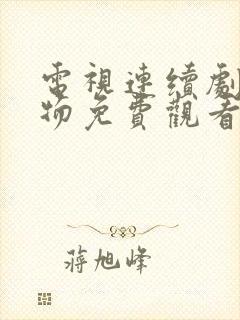 電視連續劇
物免費觀看
蔣旭峰